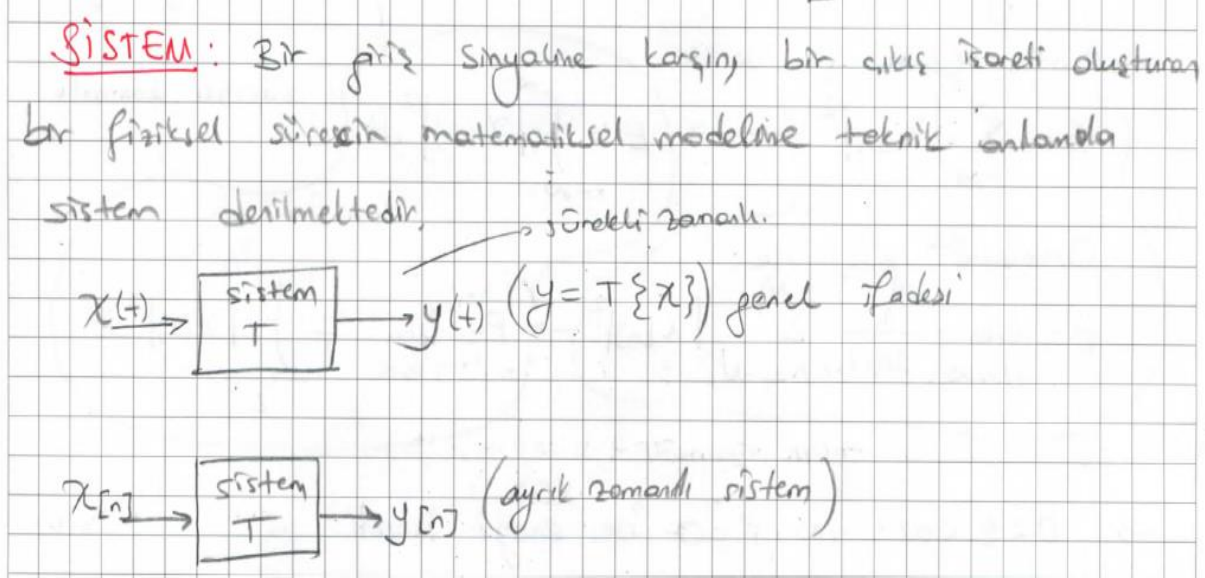 SİSTEM: Bir giriş sinyaline karşın, bir çıkış işareti oluşturan
bir fiziksel sürecin matematiksel modeline teknik anlamda
sistem denilmektedir.
sürekli zamanlı.
x(t) sistem T y(t) (y = T{x}) genel ifadesi
x[n] sistem T y[n] (ayrık zamanlı sistem)